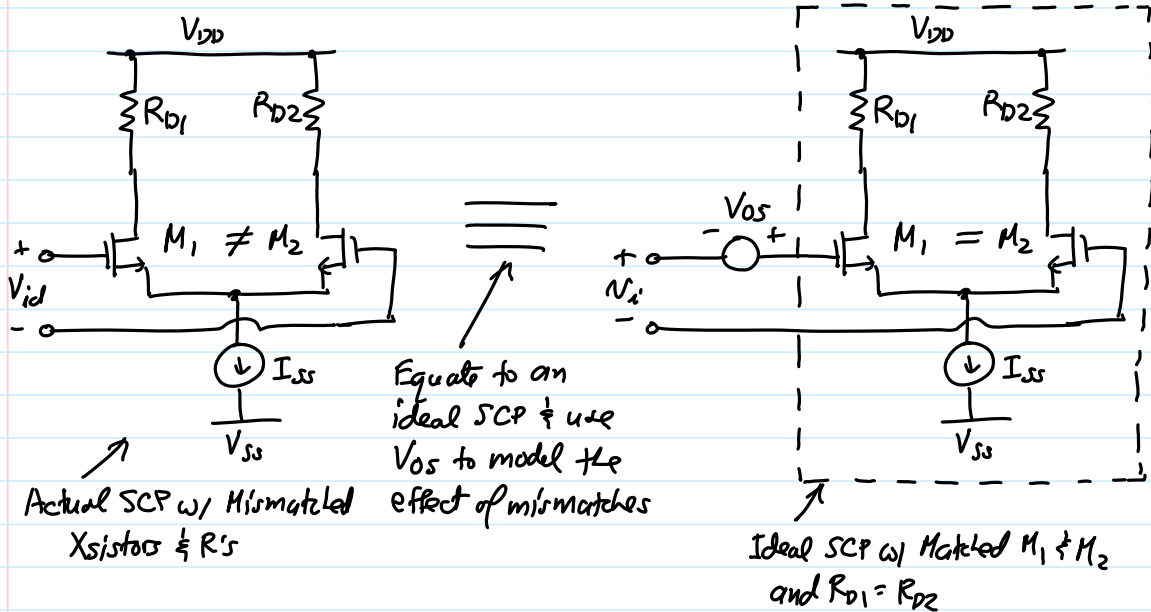 V_DD
R_D1 R_D2
M_1 ≠ M_2
+
V_id
-
I_SS
V_SS
Actual SCP w/ Mismatched
Xsistors & R's
Equate to an
ideal SCP & use
V_OS to model the
effect of mismatches
V_DD
R_D1 R_D2
V_OS
- +
M_1 = M_2
+
v_i
-
I_SS
V_SS
Ideal SCP w/ Matched M_1 & M_2
and R_D1 = R_D2